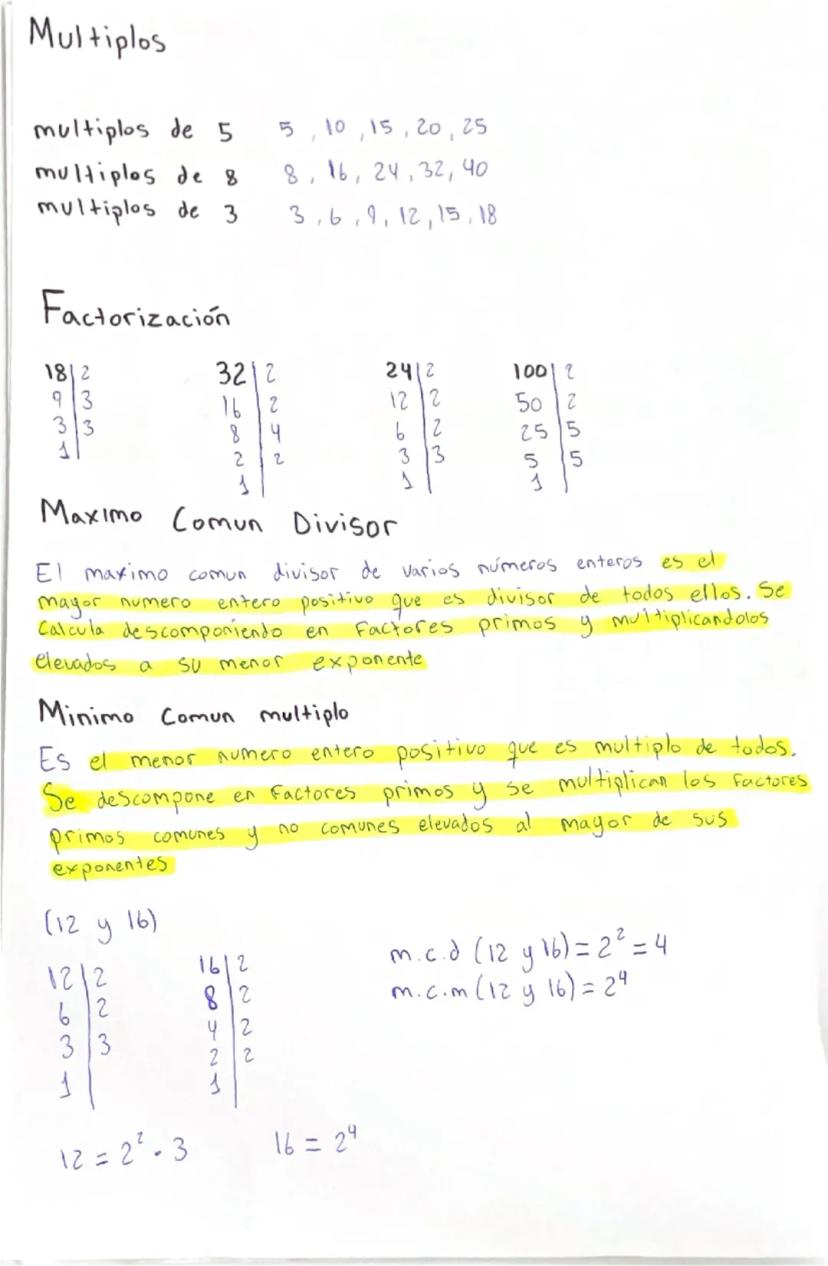 Multiplos
multiplos de 5 5, 10, 15, 20, 25
multiplos de 8 8, 16, 24, 32, 40
multiplos de 3 3, 6, 9, 12, 15, 18
Factorización
18|2 32|2 24|2 100|2
9|3 16|2 12|2 50|2
3|3 8|4 6|2 25|5
1| 2|2 3|3 5|5
1| 1| 1|
Maximo Comun Divisor
El maximo comun divisor de varios números enteros es el
mayor numero entero positivo que es divisor de todos ellos. Se
Calcula descomponiendo en Factores primos y multiplicandolos
elevados a su menor exponente
Minimo Comun multiplo
Es el menor numero entero positivo que es multiplo de todos.
Se descompone en Factores primos y se multiplican los Factores
primos comunes y no comunes elevados al mayor de sus
exponentes
(12 y 16)
12|2 16|2 m.c.d (12 y 16) = 2² = 4
6|2 8|2 m.c.m (12 y 16) = 2⁴
3|3 4|2
1| 2|2
1|
12 = 2² · 3 16 = 2⁴